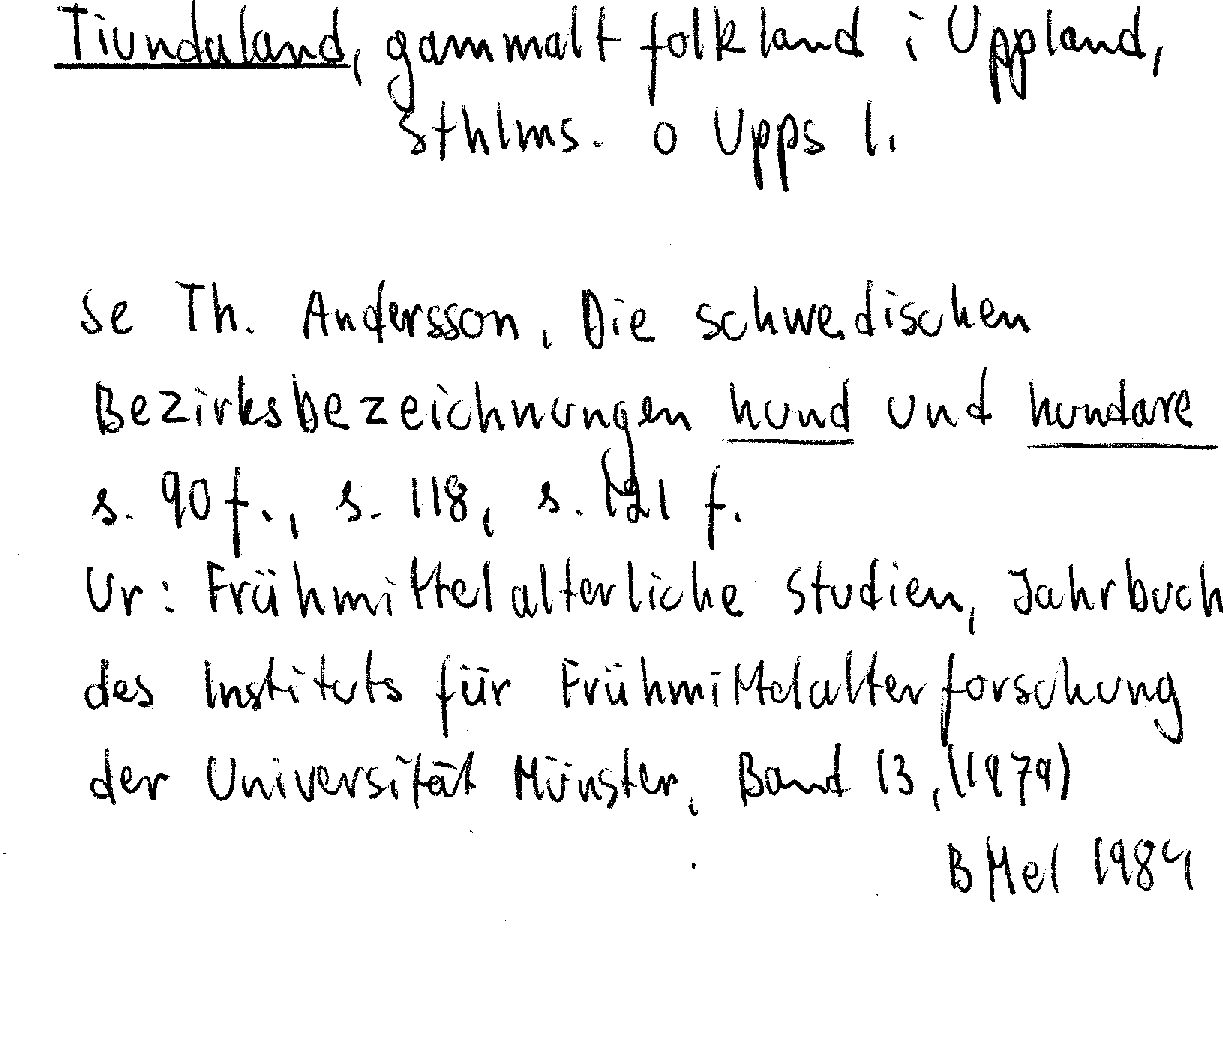 Tiundaland, gammalt folkland i Uppland,
Sthlms. o Upps l.
se Th. Andersson, Die schwedischen
Bezirksbezeichnungen hund und hundare
s. 90 f., s. 118, s. 121 f.
Ur: Frühmittelalterliche Studien, Jahrbuch
des Instituts für Frühmittelalterforschung
der Universität Münster, Band 13, (1979)
B Mel 1984